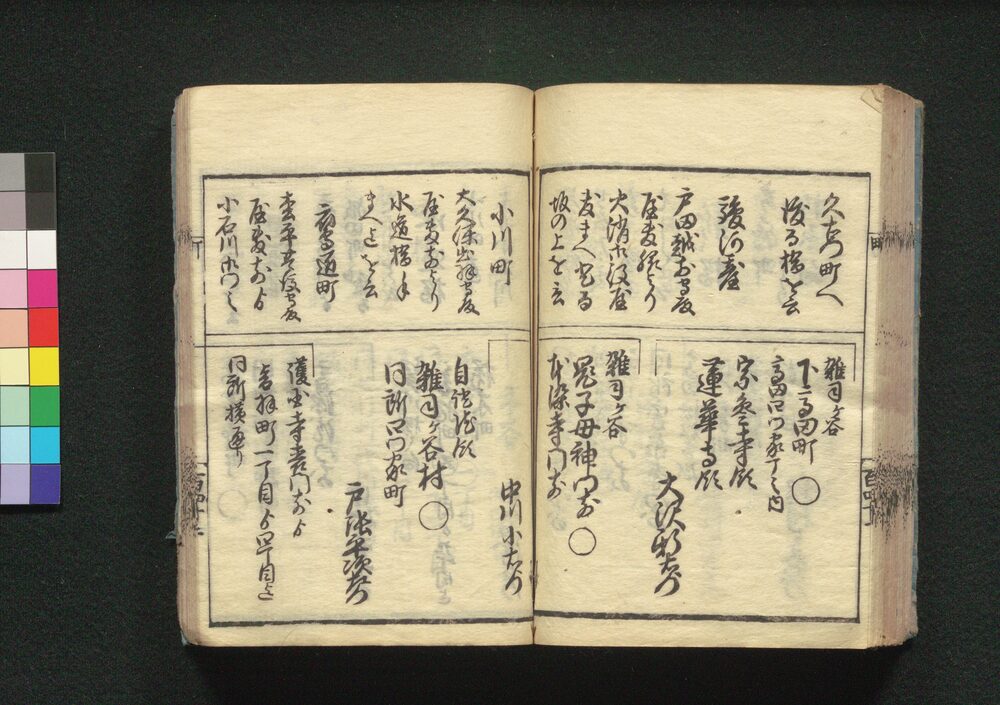 久右衛門町へ
渡る橋を云
駿河臺
戸田越前守殿
屋敷脇より
火消御役屋
敷まへ出る
坂の上を云
雑司ヶ谷
下高田町 ○
高田四ツ家丁之内
宗参寺領
蓮華寺領
大沢
雑司ヶ谷
鬼子母神門前 ○
本染寺門前
小川町
大久保出羽守殿
屋敷前より
水道橋手
まへ迄を云
裏
道町
屋敷前ゟ
小石川御門之
中川小右衛門
自証院領
雑司ヶ谷村 ○
同所四ツ家町
戸張平次左衛門
護国寺表門前ゟ
音羽町一丁目ゟ四丁目迄
同所横通り ○